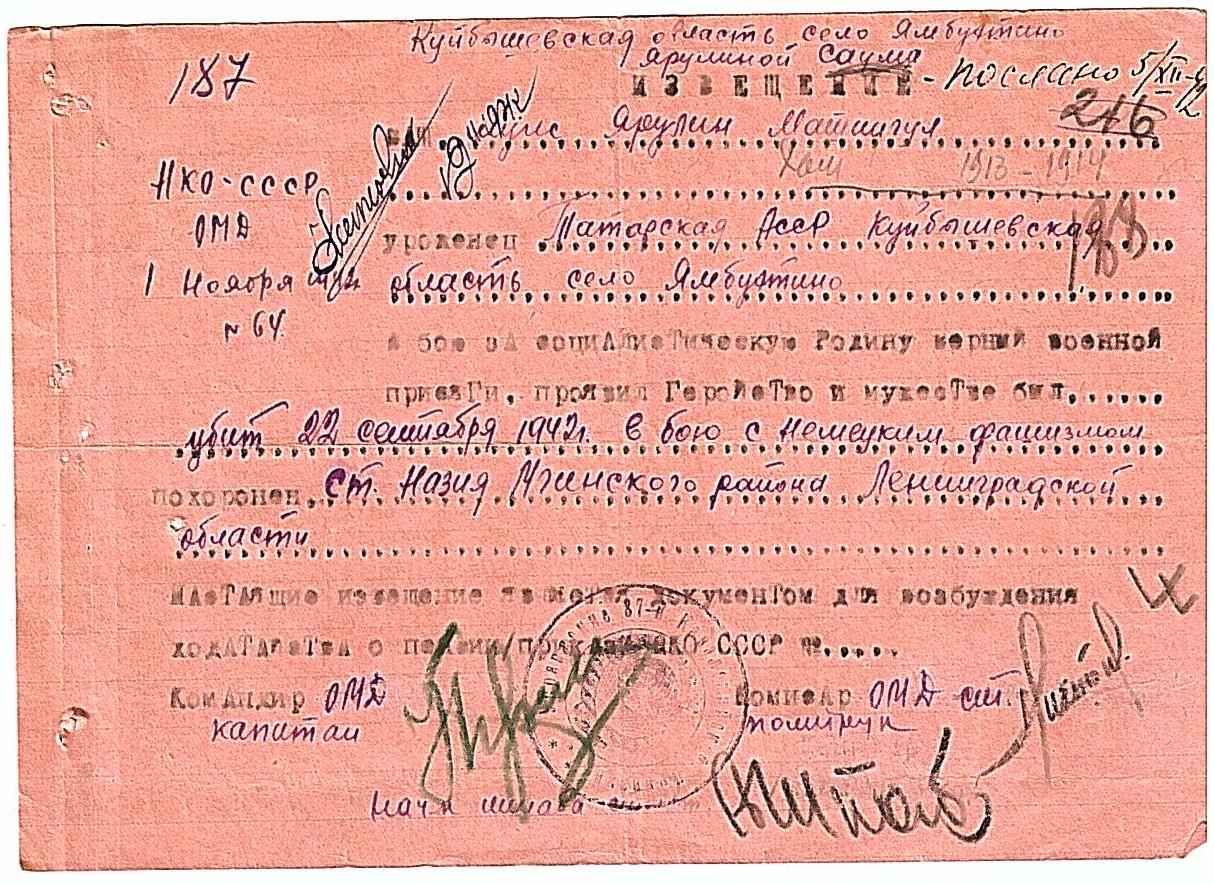 Куйбышевская область село Ямбухтино
Яруминой Саума
187
ИЗВЕЩЕНИЕ - послано 5/XII-42
216
Ярулин Матшигул
1913 - 1914
НКО-СССР
ОМД
188
уроженец Татарская АССР Куйбышевская
1 Ноября область село Ямбухтино
N 64
в бою за социалистическую Родину верный военной
присяги, проявил Геройство и мужество был
убит 22 сентября 1942г. в бою с немецким фашизмом
похоронен ст. Назия Мгинского района Ленинградской
области
настаящие извещение является документом для возбуждения
ходатайства о пенсии/приказ НКО СССР №
Командир ОМД Комисар ОМД ст.
капитан политрук
Нач-к штаба